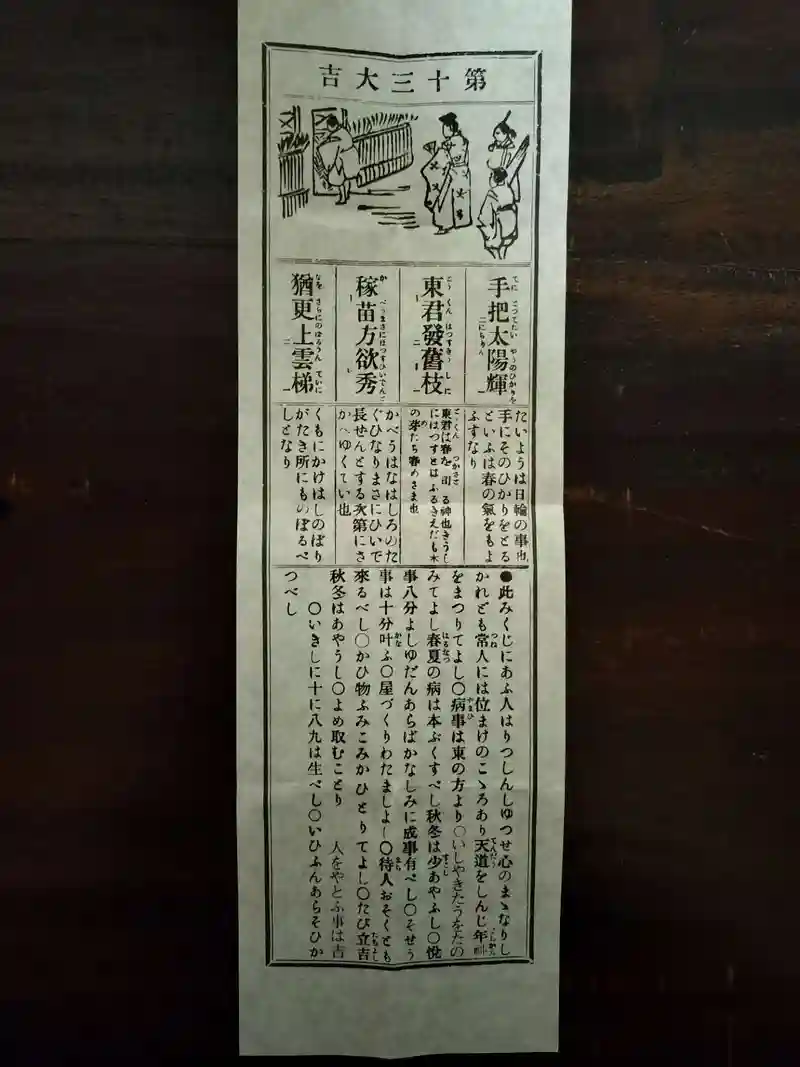 第十三大吉
手把太陽輝
東君發舊枝
稼苗方欲秀
猶更上雲梯
たいようは日輪の事也
手にそのひかりをとる
といふは春の氣をもよ
ふすなり
東君は春を司る神也きうし
にはつすとはふるきえだも木
の芽たち春めさま也
かべうはなはしろのた
ぐひなりまさにひいで
長せんとする次第にさ
かへゆくてい也
くもにかけはしのぼり
がたき所にものぼるべ
しとなり
●此みくじにあふ人はりつしんしゆつせ心のまゝなりし
かれども常人には位まけのこゝろあり天道をしんじ年
をまつりてよし〇病事は東の方より〇いしやきたうをたの
みてよし春夏の病は本ぷくすべし秋冬は少あやふし〇悦
事八分よしゆだんあらばかなしみに成事有べし〇そせう
事は十分叶ふ〇屋づくりわたましよし〇待人おそくとも
來るべし〇かひ物ふみこみかひとりてよし〇たび立吉
秋冬はあやうし〇よめ取むことり 人をやとふ事は吉
〇いきしに十に八九は生べし〇いひふんあらそひか
つべし